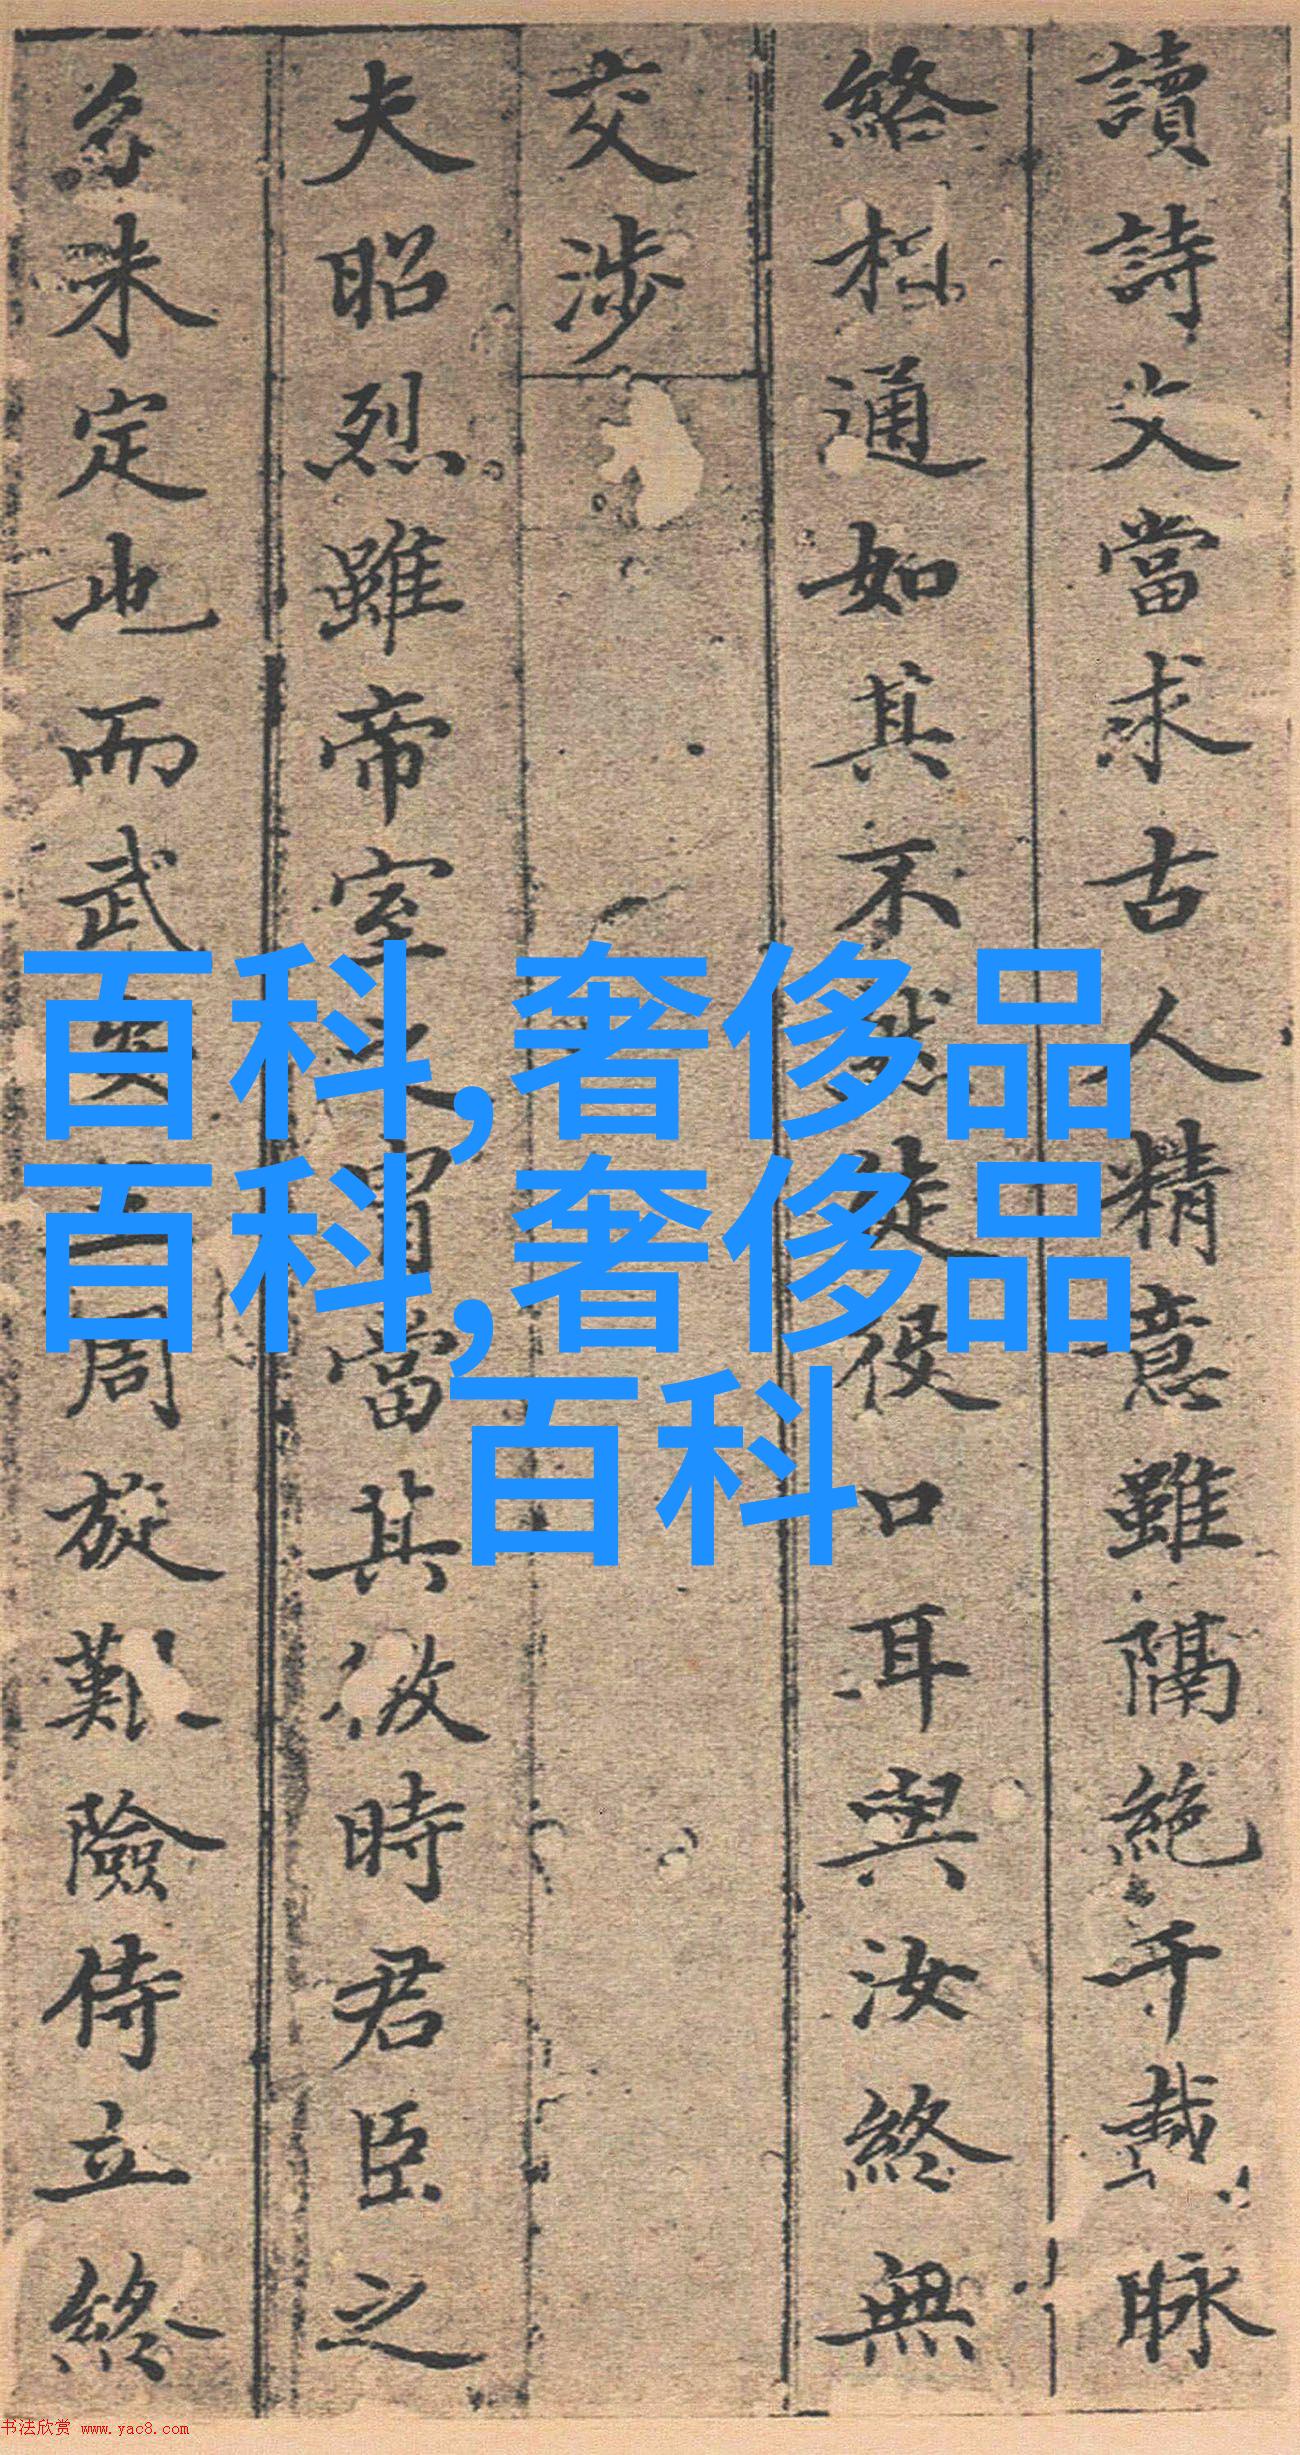 讀詩文當求古人精意雖隔絶千載脉
絡相通如其不然徒役口耳與汝終無
交涉
夫昭烈雖帝室之胄當其微時君臣之
分未定也而武安王周旋艱險侍立終
百科,奢侈品
百科,奢侈品
百科
书法欣赏 www.yac8.com